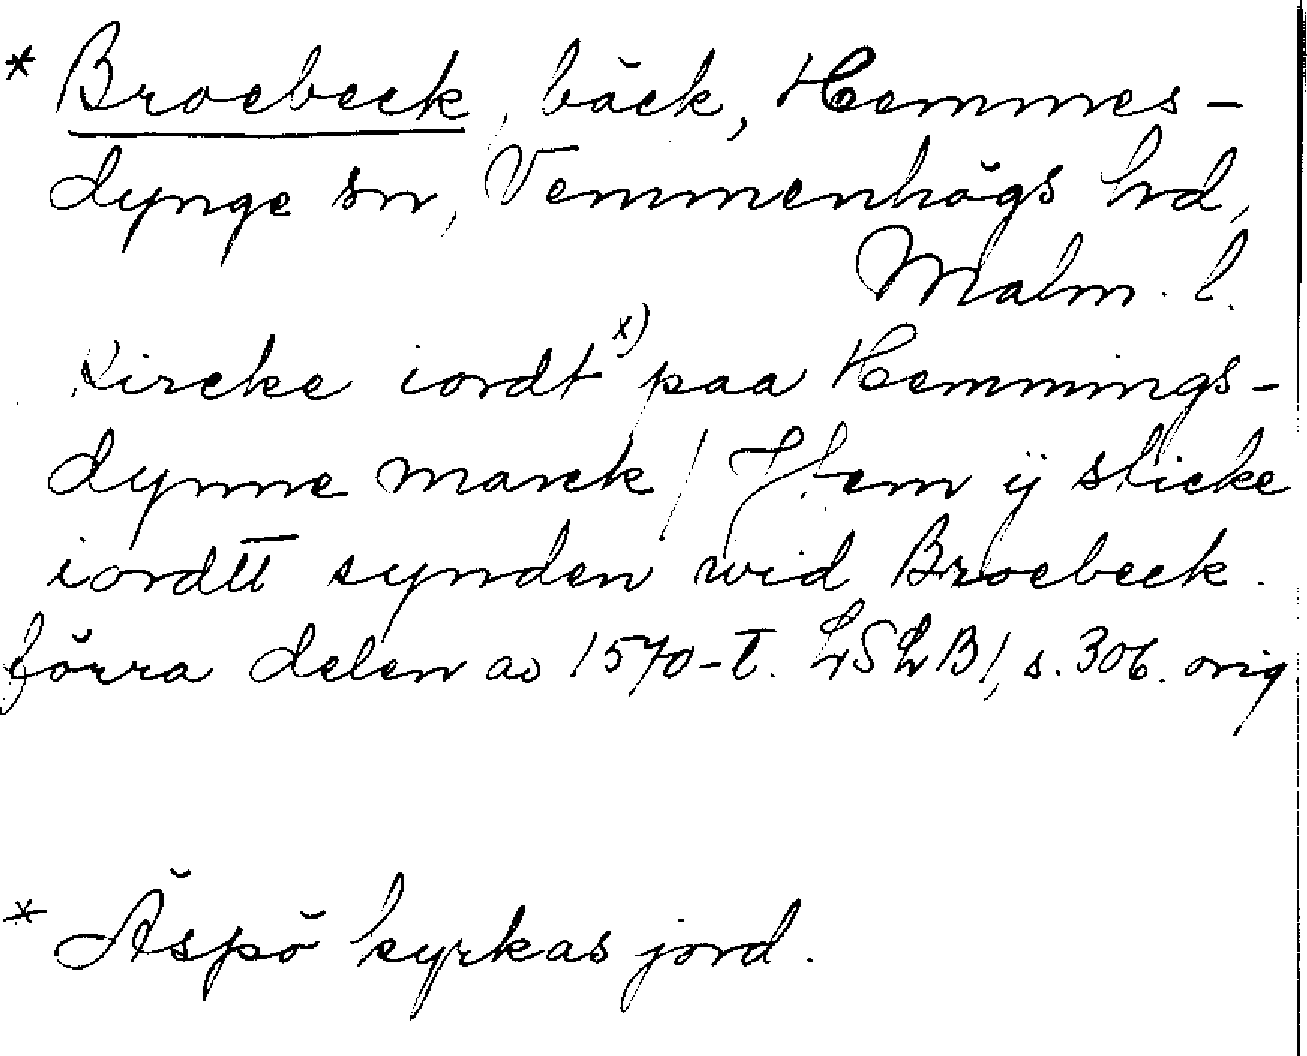 * Broebeck, bäck, Hemmes-
dynge sn, Vemmenhögs hd,
Malm. l.
Kircke iordt x) paa Hemmings-
dynne marck / Jtem ij sticke
iordtt synden wid Broebeck.
förra delen av 1570-t. LSLB1, s. 306. orig
* Äspö kyrkas jord.